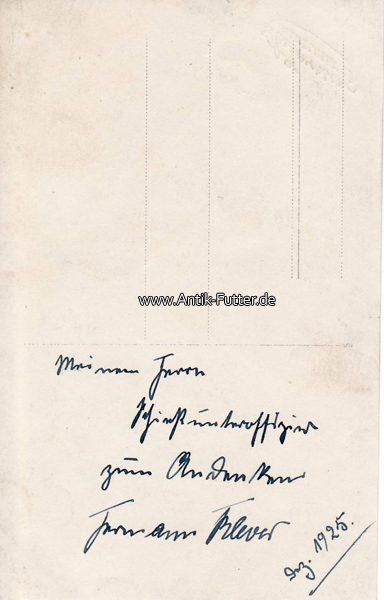 www.Antik-Futter.de
Meinem Herrn
Schießunteroffizier
zum Andenken
Hermann
Dez. 1925.